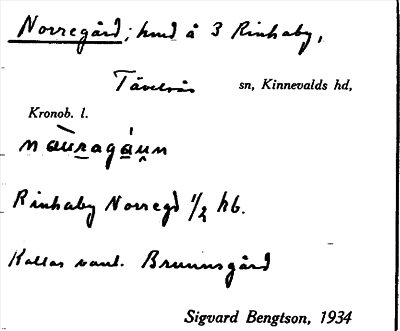 Norregård; hmd å 3 Rinkaby,
Tävelsås sn, Kinnevalds hd,
Kronob. l.
Rinkaby Norregd 1/2 hb.
Kallas vanl. Brunnsgård
Sigvard Bengtson, 1934